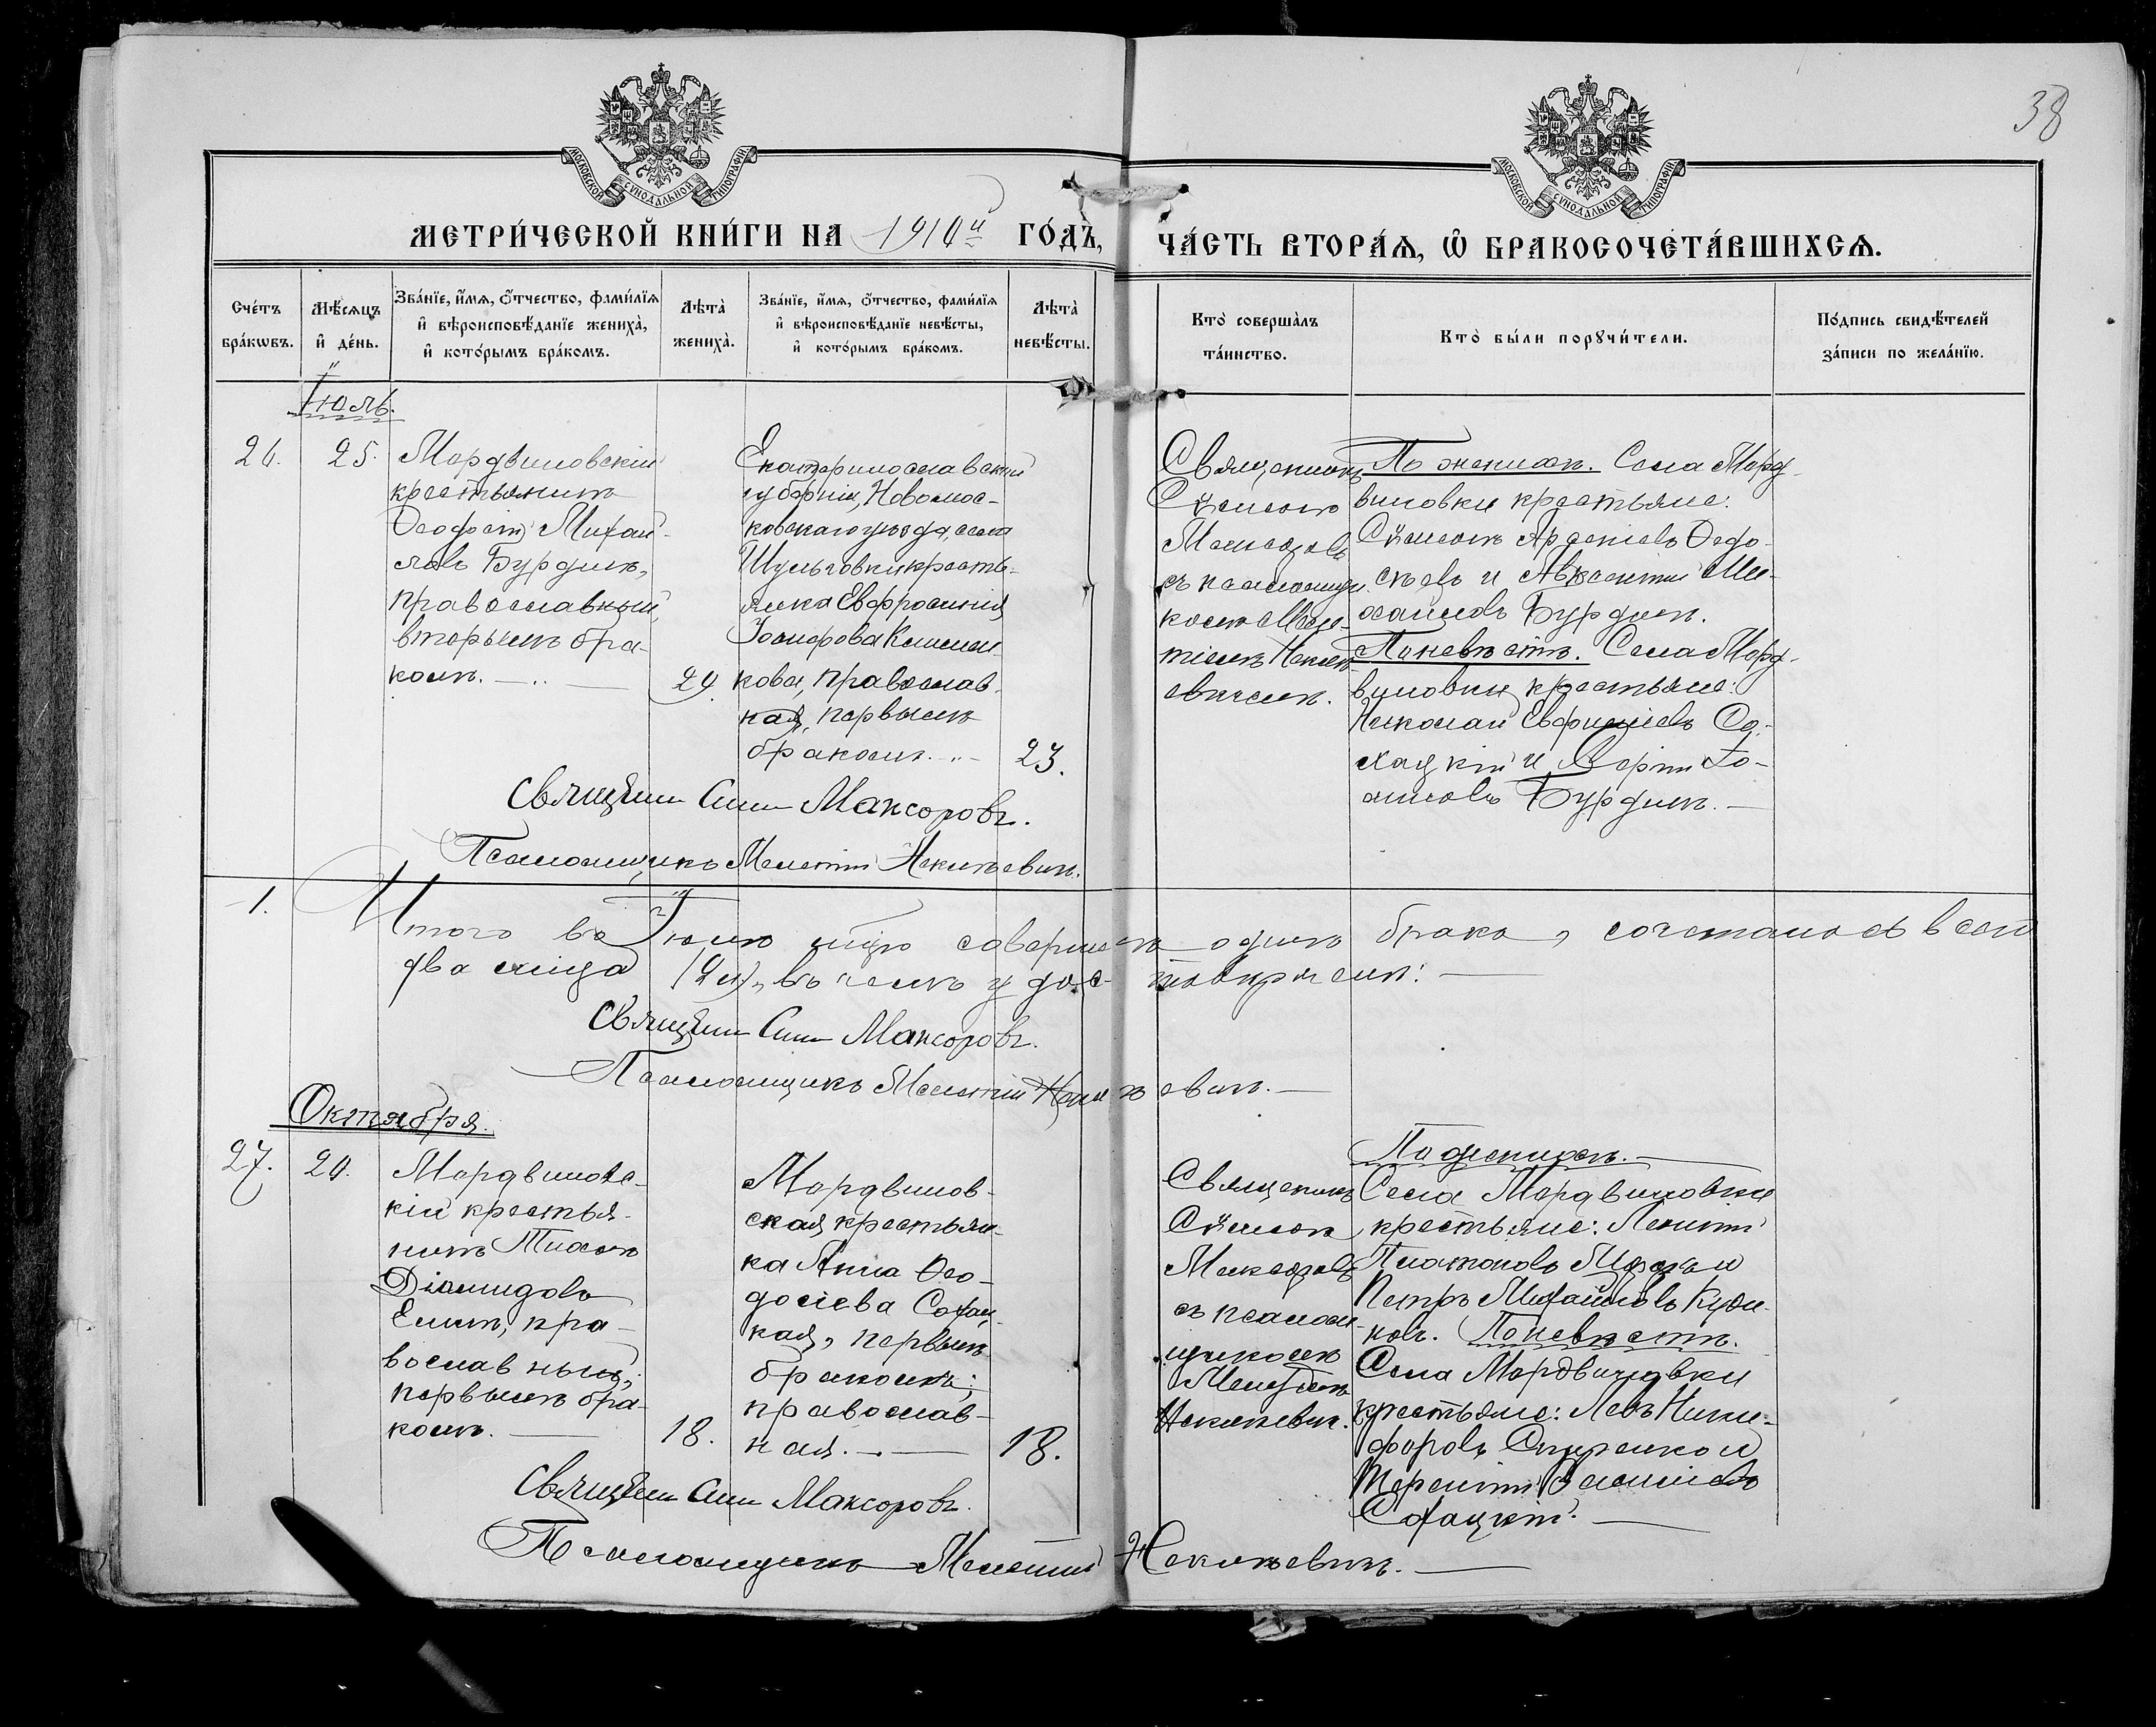 38
МОСКОВСКОЙ СѴНОДАЛЬНОЙ ТИПОГРАФІИ
МОСКОВСКОЙ СѴНОДАЛЬНОЙ ТИПОГРАФІИ
МЕТРИ́ЧЕСКОЙ КНИ́ГИ НА 1910й ГО́ДЪ,
ЧА́СТЬ ВТОРА́Ѧ, Ѡ БРАКОСОЧЕТА́ВШИХСѦ.
Сче́тъ
бра́кѡвъ.
Мѣ́сѧцъ
и҆ де́нь.
Зва́нїе, и҆́мѧ, ѻ҆́тчество, фами́лїѧ
и҆ вѣроисповѣ́данїе жениха̀,
и҆ кото́рымъ бра́комъ.
Лѣ́та
жениха̀.
Зва́нїе, и҆́мѧ, ѻ҆́тчество, фами́лїѧ
и҆ вѣроисповѣ́данїе невѣ́сты,
и҆ кото́рымъ бра́комъ.
Лѣ́та
невѣ́сты.
Кто̀ соверша̀лъ
та́инство.
Кто̀ бы́ли порꙋчи́тели.
По́дпись свидѣ́телей
за́писи по жела́нїю.
Іюль.
26.
25.
Мордвиновскій
крестьянинъ
Ѳеофетъ Михаи-
ловъ Бурдинъ,
православный,
вторымъ бра-
комъ.
29.
Екатеринославской
губерніи, Новомос-
ковскаго уѣзда, села
Шульговки кресть-
янка Евфросинія
Іосифова
кова, православ-
ная, первымъ
бракомъ.
23.
Священникъ
Сѵмеонъ
Максоровъ
съ псаломщи-
комъ Меле-
тіемъ
По женихѣ. Села Морд-
виновки крестьяне:
Сѵмеонъ Арсеніевъ
и Авксентій Ми-
хаиловъ Бурдинъ.
По невѣстѣ. Села Морд-
виновки крестьяне:
Николай Са-
хацкій и Іо-
анновъ Бурдинъ.
Священн Сим Максоровъ.
Псаломщикъ Мелетій
1.
Итого въ Іюлѣ м-цѣ совершенъ одинъ бракъ, сочеталось всего
два лица (2 л), въ чемъ и удостовѣряемъ:
Священн Сим Максоровъ.
Псаломщикъ Мелетій
Октября.
27.
20.
Мордвиновс-
кій крестья-
нинъ Тихонъ
Діомидовъ
Елинъ, пра-
вославный,
первымъ бра-
комъ.
18.
Мордвинов-
ская крестьян-
ка Анна Ѳео-
досіева Сохац-
кая, первымъ
бракомъ;
православ-
ная.
18.
Священникъ
Сѵмеонъ
Максоровъ
съ псалом-
щикомъ
Мелетіемъ
По женихѣ.
Села Мордвиновки
крестьяне:
Платоновъ и
Петръ Михайловъ
По невѣстѣ.
Села Мордвиновки
крестьяне: Левъ Ники-
форовъ и
Терентій
Сохацкій.
Священн Сим Максоровъ.
Псаломщикъ Мелетій